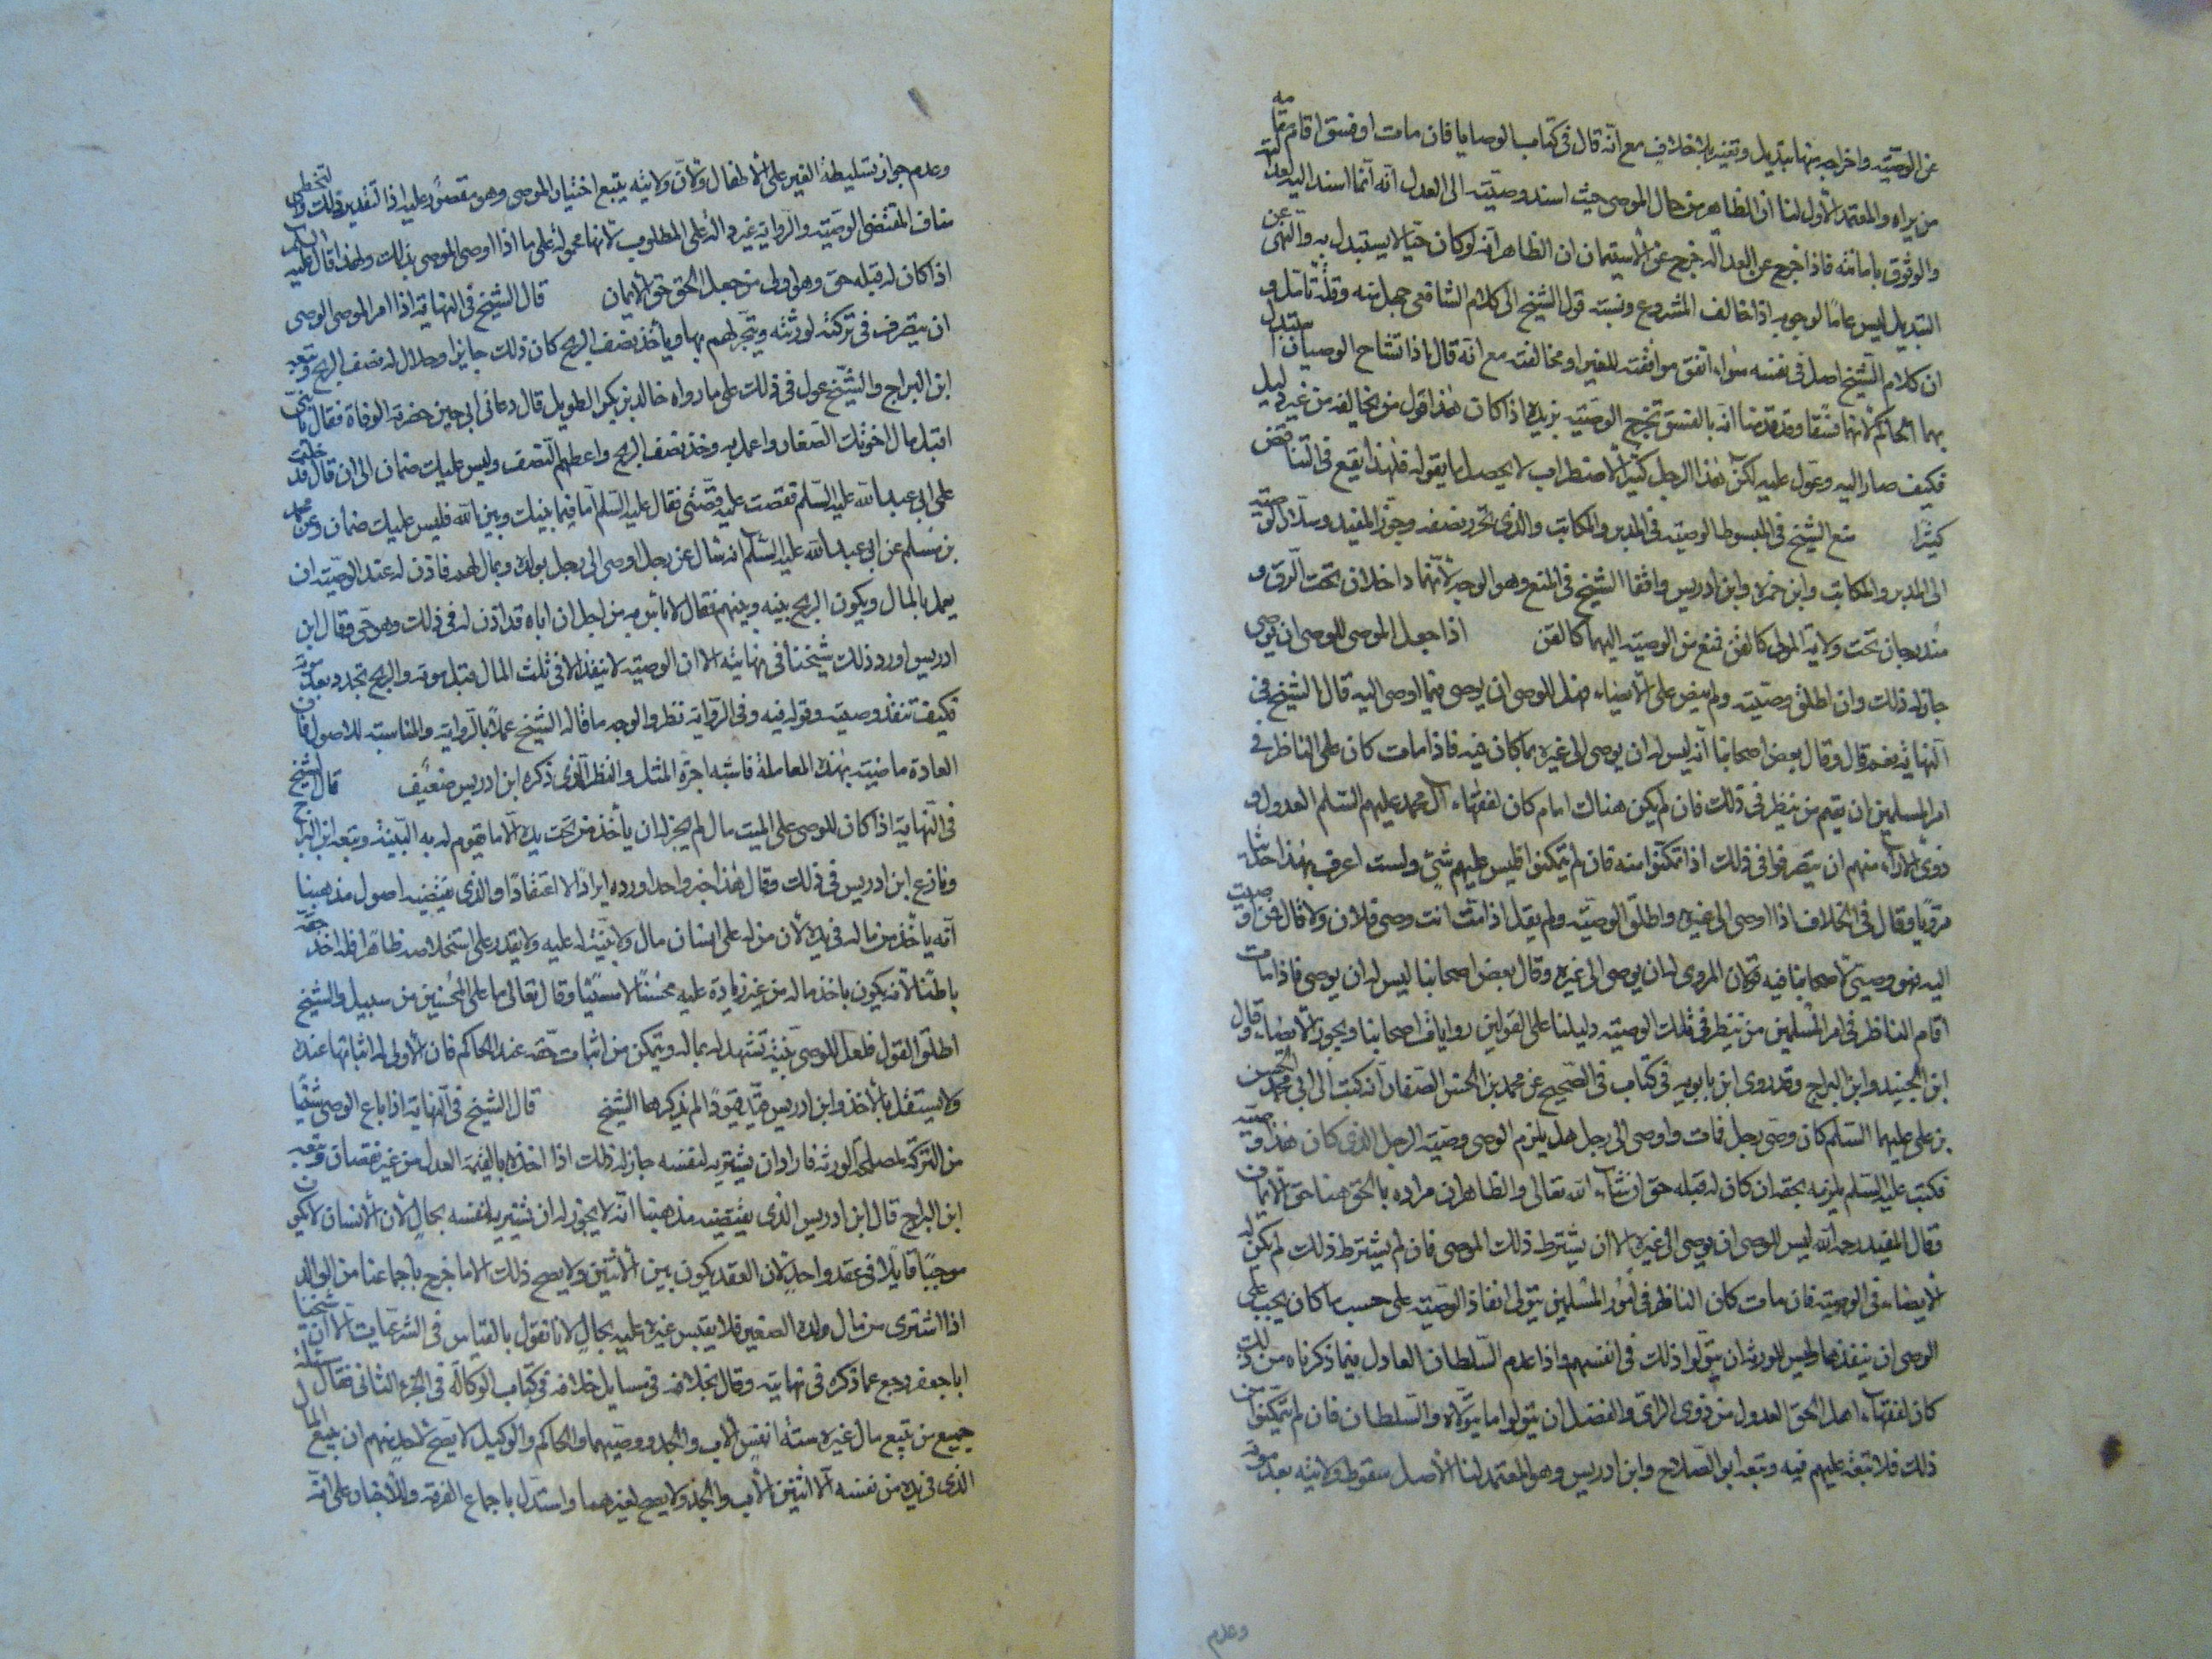 عن الوصيّة واخراجه منها تبديل وتغيير بلا خلاف مع انّه قال في كتاب الوصايا فان مات او فسق اقام مقامه
من يراه والمعتمد الاول لنا ان الظاهر من حال الموصى حيث اسند وصيّته الى العدل انّه انّما اسند اليه لعدالته
والوثوق بامانته فاذا خرج عن العدالة خرج عن الاستيمان اذ الظاهر انّه لو كان حيّا لاستبدل به والنهى عن
التبديل ليس عامّا لوجوبه اذا خالف المشروع ونسبته قول الشيخ الى كلام الشافعى جهل منه وقلّة تامّل و
ان كلام الشيخ اصل في نفسه سواء اتفق موافقته للغير او مخالفته مع انّه قال اذا تشاح الوصيان استبدل
بهما الحاكم لانهما فسقا وقد قدمنا انّه بالفسق تخرج الوصيّة من يده اذا كان هذا قول من يخالفه من غير دليل
فكيف صار اليه وعوّل عليه لكن هذا الرجل كثير الاضطراب لا يحصل ما يقوله فلهذا يقع في التناقض
كثيرًا منع الشيخ في المبسوط الوصيّة في المدبر والمكاتب والذى تحرر نصفه وجوّز المفيد وسلار الوصيّة
الى المدبر والمكاتب وابن حمزة وابن ادريس وافقا الشيخ في المنع وهو الوجه لانّهما داخلان تحت الرق و
مندرجان تحت ولاية المولى كالقن فمنع من الوصيّة اليهما كالقن اذا جعل الموصى للوصى ان يوصى
جاز له ذلك وان اطلق وصيّته ولم ينص على الايصاء فهل للوصى ان يوصى فيما اوصى اليه قال الشيخ في
النهاية نعم قال وقال بعض اصحابنا انّه ليس له ان يوصى الى غيره بما كان فيه فاذا مات كان على الناظر في
امر المسلمين ان يقيم من ينظر في ذلك فان لم يكن هناك امام كان لفقهاء آل محمد عليهم السّلم العدول و
ذوى الآراء منهم ان يتصرفوا في ذلك اذا تمكّنوا منه فان لم يتمكنوا فليس عليهم شئ ولست اعرف بهذا حديثا
مرويّا وقال في الخلاف اذا اوصى الى غيره واطلق الوصيّة ولم يقل اذا متّ انت وصى فلان ولا قال فمن اوصيت
اليه فهو وصيّى لاصحابنا فيه قولان المروى له ان يوصى الى غيره وقال بعض اصحابنا ليس له ان يوصى فاذا مات
اقام الناظر في امر المسلمين من ينظر في تلك الوصيّة دليلنا على القولين روايات اصحابنا ويجوز الايصاء قال
ابن الجنيد وابن البراج وقد روى ابن بابويه في كتابه في الصّحيح عن محمد بن الحسن الصّفار انه كتب الى ابى محمد الحسن
بن على عليهما السّلم كان وصى رجل فمات واوصى الى رجل هل يلزم الوصى وصيّة الرجل الذى كان هذا وصيّه
فكتب عليه السّلم يلزمه بحقه ان كان له قبله حق ان شاء الله تعالى والظاهر ان مراده بالحق هنا حق الايمان
وقال المفيد رحمه الله ليس للوصى ان يوصى الى غيره الا ان يشترط ذلك الموصى فان لم يشترط ذلك لم يكن له
الايصاء في الوصيّة فان مات كان الناظر في امور المسلمين يتولى انفاذ الوصيّة على حسب ما كان يجب على
الوصى ان ينفذها وليس للورثة ان يتولوا ذلك في انفسهم واذا عدم السّلطان العادل فيما ذكرناه من ذلك
كان لفقهاء اهل الحق العدول من ذوى الراى والفضل ان يتولوا ما يتولاه والسّلطان فان لم يتمكنوا من
ذلك فلا تبعة عليهم فيه وتبعه ابو الصّلاح وابن ادريس وهو المعتمد لنا الاصل سقوط ولايته بعد موته
وعدم
وعدم جواز تسليطه الغير على الاطفال ولانّ ولايته يتبع اختيار الموصى وهو مقصور عليه اذا لتقدير ذلك والتخطى
مناف لمقتضى الوصيّة والرواية غير دالة على المطلوب لانّها محمولة على ما اذا اوصى الموصى بذلك ولهذا قال عليه السلم
اذا كان له قبله حق وهو اولى من جعل الحق حق الايمان قال الشيخ في النهاية اذا امر الموصى الوصى
ان يتصرف في تركته لورثته ويتّجر لهم بها وياخذ نصف الربح كان ذلك جايزا وحلال له نصف الربح وتبعه
ابن البراج والشيخ عول في ذلك على ما رواه خالد بن بكر الطويل قال دعانى ابى حين حضرته الوفاة فقال يا بنىّ
اقبل مال اخوتك الصّغار واعمل به وخذ نصف الربح واعطهم النّصف وليس عليك ضمان الى ان قال فدخلت
على ابى عبد الله عليه السّلم فقصصت عليه قصّتى فقال عليه السّلم امّا فيما بينك وبين الله فليس عليك ضمان وعن محمد
بن مسلم عن ابى عبد الله عليه السّلم انه سال عن رجل اوصى الى رجل بولده وبمال لهم فاذن له عند الوصيّة ان
يعمل بالمال ويكون الربح بينه وبينهم فقال لا باس به من اجل ان اباه قد اذن له في ذلك وهو حىّ وقال ابن
ادريس اورد ذلك شيخنا في نهايته الا ان الوصيّة لا ينفذ الا في ثلث المال قبل موته والربح تجدد بعد موته
فكيف تنفذ وصيته وقوله فيه وفى الرّواية نظر والوجه ما قاله الشيخ عملا بالرّواية والمناسبة للاصول فان
العادة ماضية بهذه المعاملة فاشبه اجرة المثل والنظر الذى ذكره ابن ادريس ضعيف قال الشيخ
في النّهاية اذا كان للوصى على الميت مال لم يجز له ان ياخذ من تحت يده الا ما تقوم له به البيّنة وتبعه ابن البراج
ونازع ابن ادريس في ذلك وقال هذا خبر واحد اورده ايرادًا لا اعتقادًا والذى يقتضيه اصول مذهبنا
انّه ياخذ من ماله في يده لان من له على انسان مال ولا بيّنة له عليه ولا يقدر على استخلاصه ظاهرا فله اخذ حقّه
باطنا لانه يكون باخذ ماله من غير زيادة عليه محسنا لا مسيئا وقال تعالى ما على المحسنين من سبيل والشيخ
اطلق القول فلعل للوصى بيّنة تشهد له بماله ويتمكن من اثبات حقّه عند الحاكم فان الاولى له اثباتها عنده
ولا يستقل بالاخذ وابن ادريس قيّد بقيود لم يذكرها الشيخ قال الشيخ في النّهاية اذا باع الوصى شيئا
من التركة لمصلحة الورثة فاراد ان يشتريه لنفسه جاز له ذلك اذا اخذه بالقيمة العدل من غير نقصان وتبعه
ابن البراج قال ابن ادريس الذى يقتضيه مذهبنا انّه لا يجوز له ان يشتريه لنفسه بحال لان الانسان لا يكون
موجبا قابلا في عقد واحد لان العقد يكون بين الاثنين ولا يصح ذلك الا ما خرج باجماعنا من الوالد
اذا اشترى من مال ولده الصغير فلا يقيس غيره عليه بحال لانا لا نقول بالقياس في الشرعيات الا ان شيخنا
ابا جعفر رجع عما ذكره في نهايته وقال بخلافه في مسايل خلافه في كتاب الوكالة في الجزء الثانى فقال مسئلة
جميع من يبيع مال غيره ستة انفس الاب والجد ووصيّهما والحاكم والوكيل لا يصح لاحد منهم ان يبيع المال
الذى في يده من نفسه الا اثنين الاب والجد ولا يصح لغيرهما واستدل باجماع الفرقة والاخبار على انّه